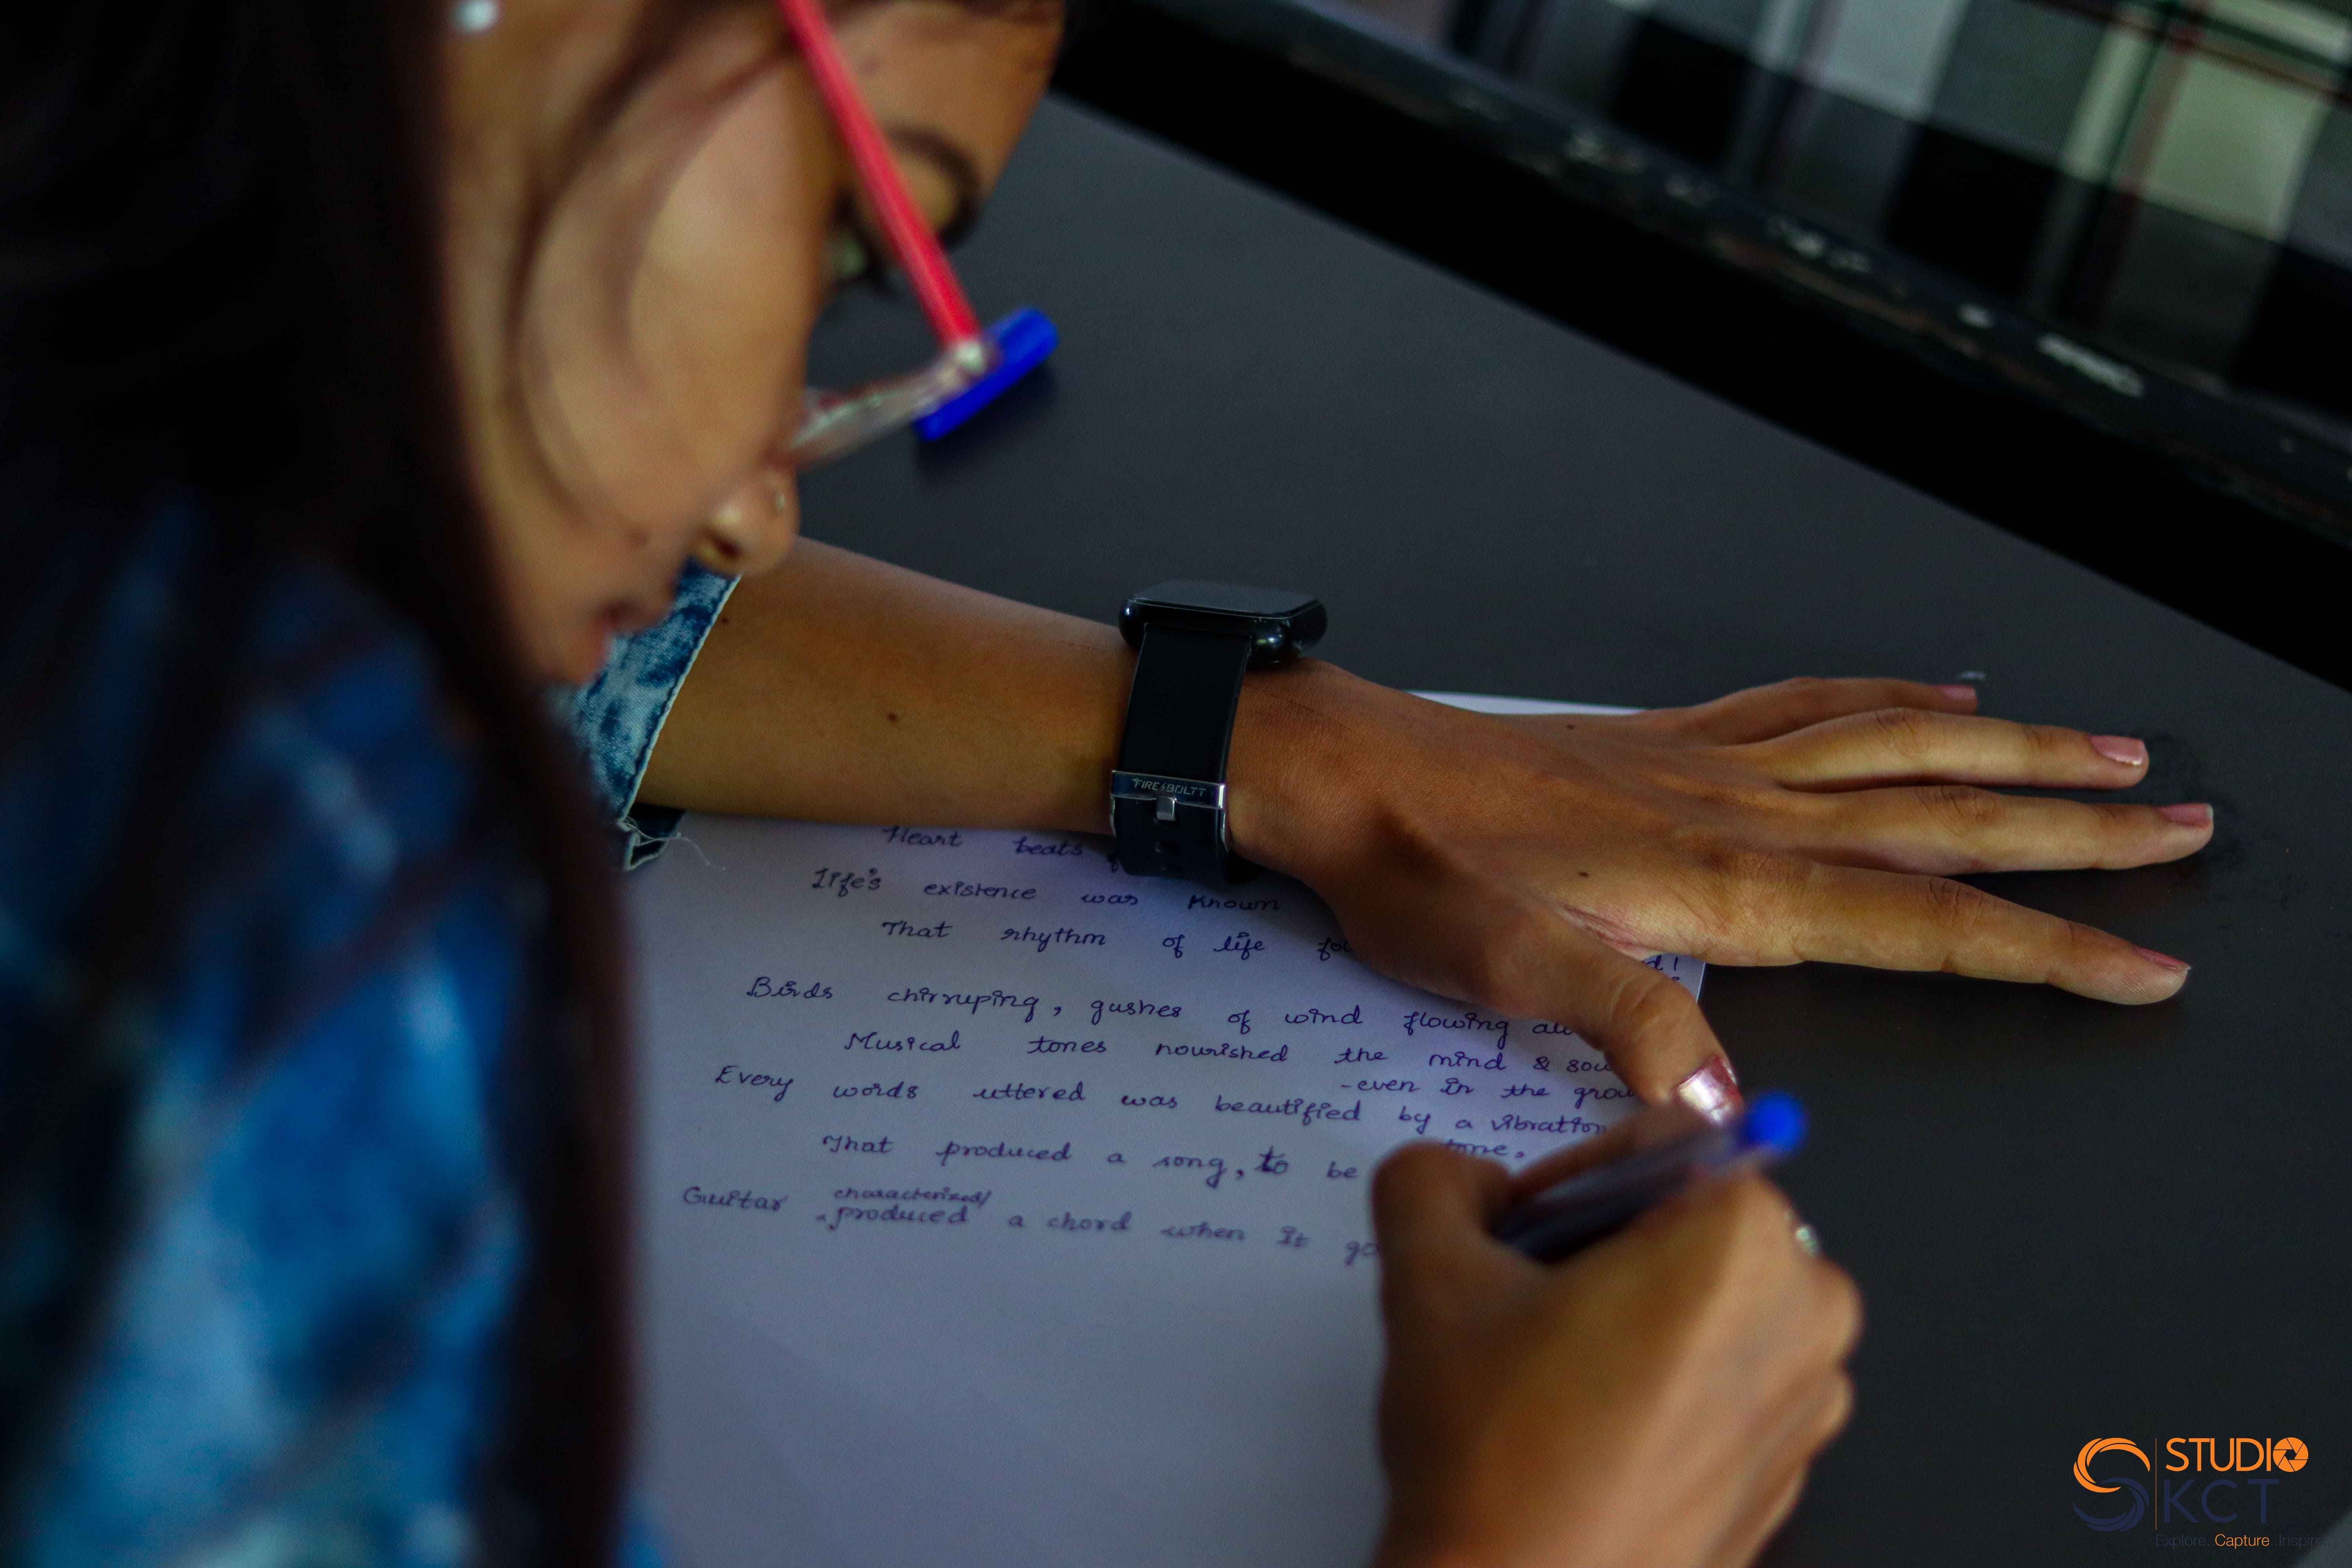 FIRE BOLTT
Heart beats
Life's existence was known
That rhythm of life
Birds chirruping, gushes of wind flowing
Musical tones nourished the mind &
-even in the
Every words uttered was beautified by a vibration
tone,
That produced a song, to be
characterized/
Guitar produced a chord when it
STUDIO
KCT
Explore, Capture..Inspire